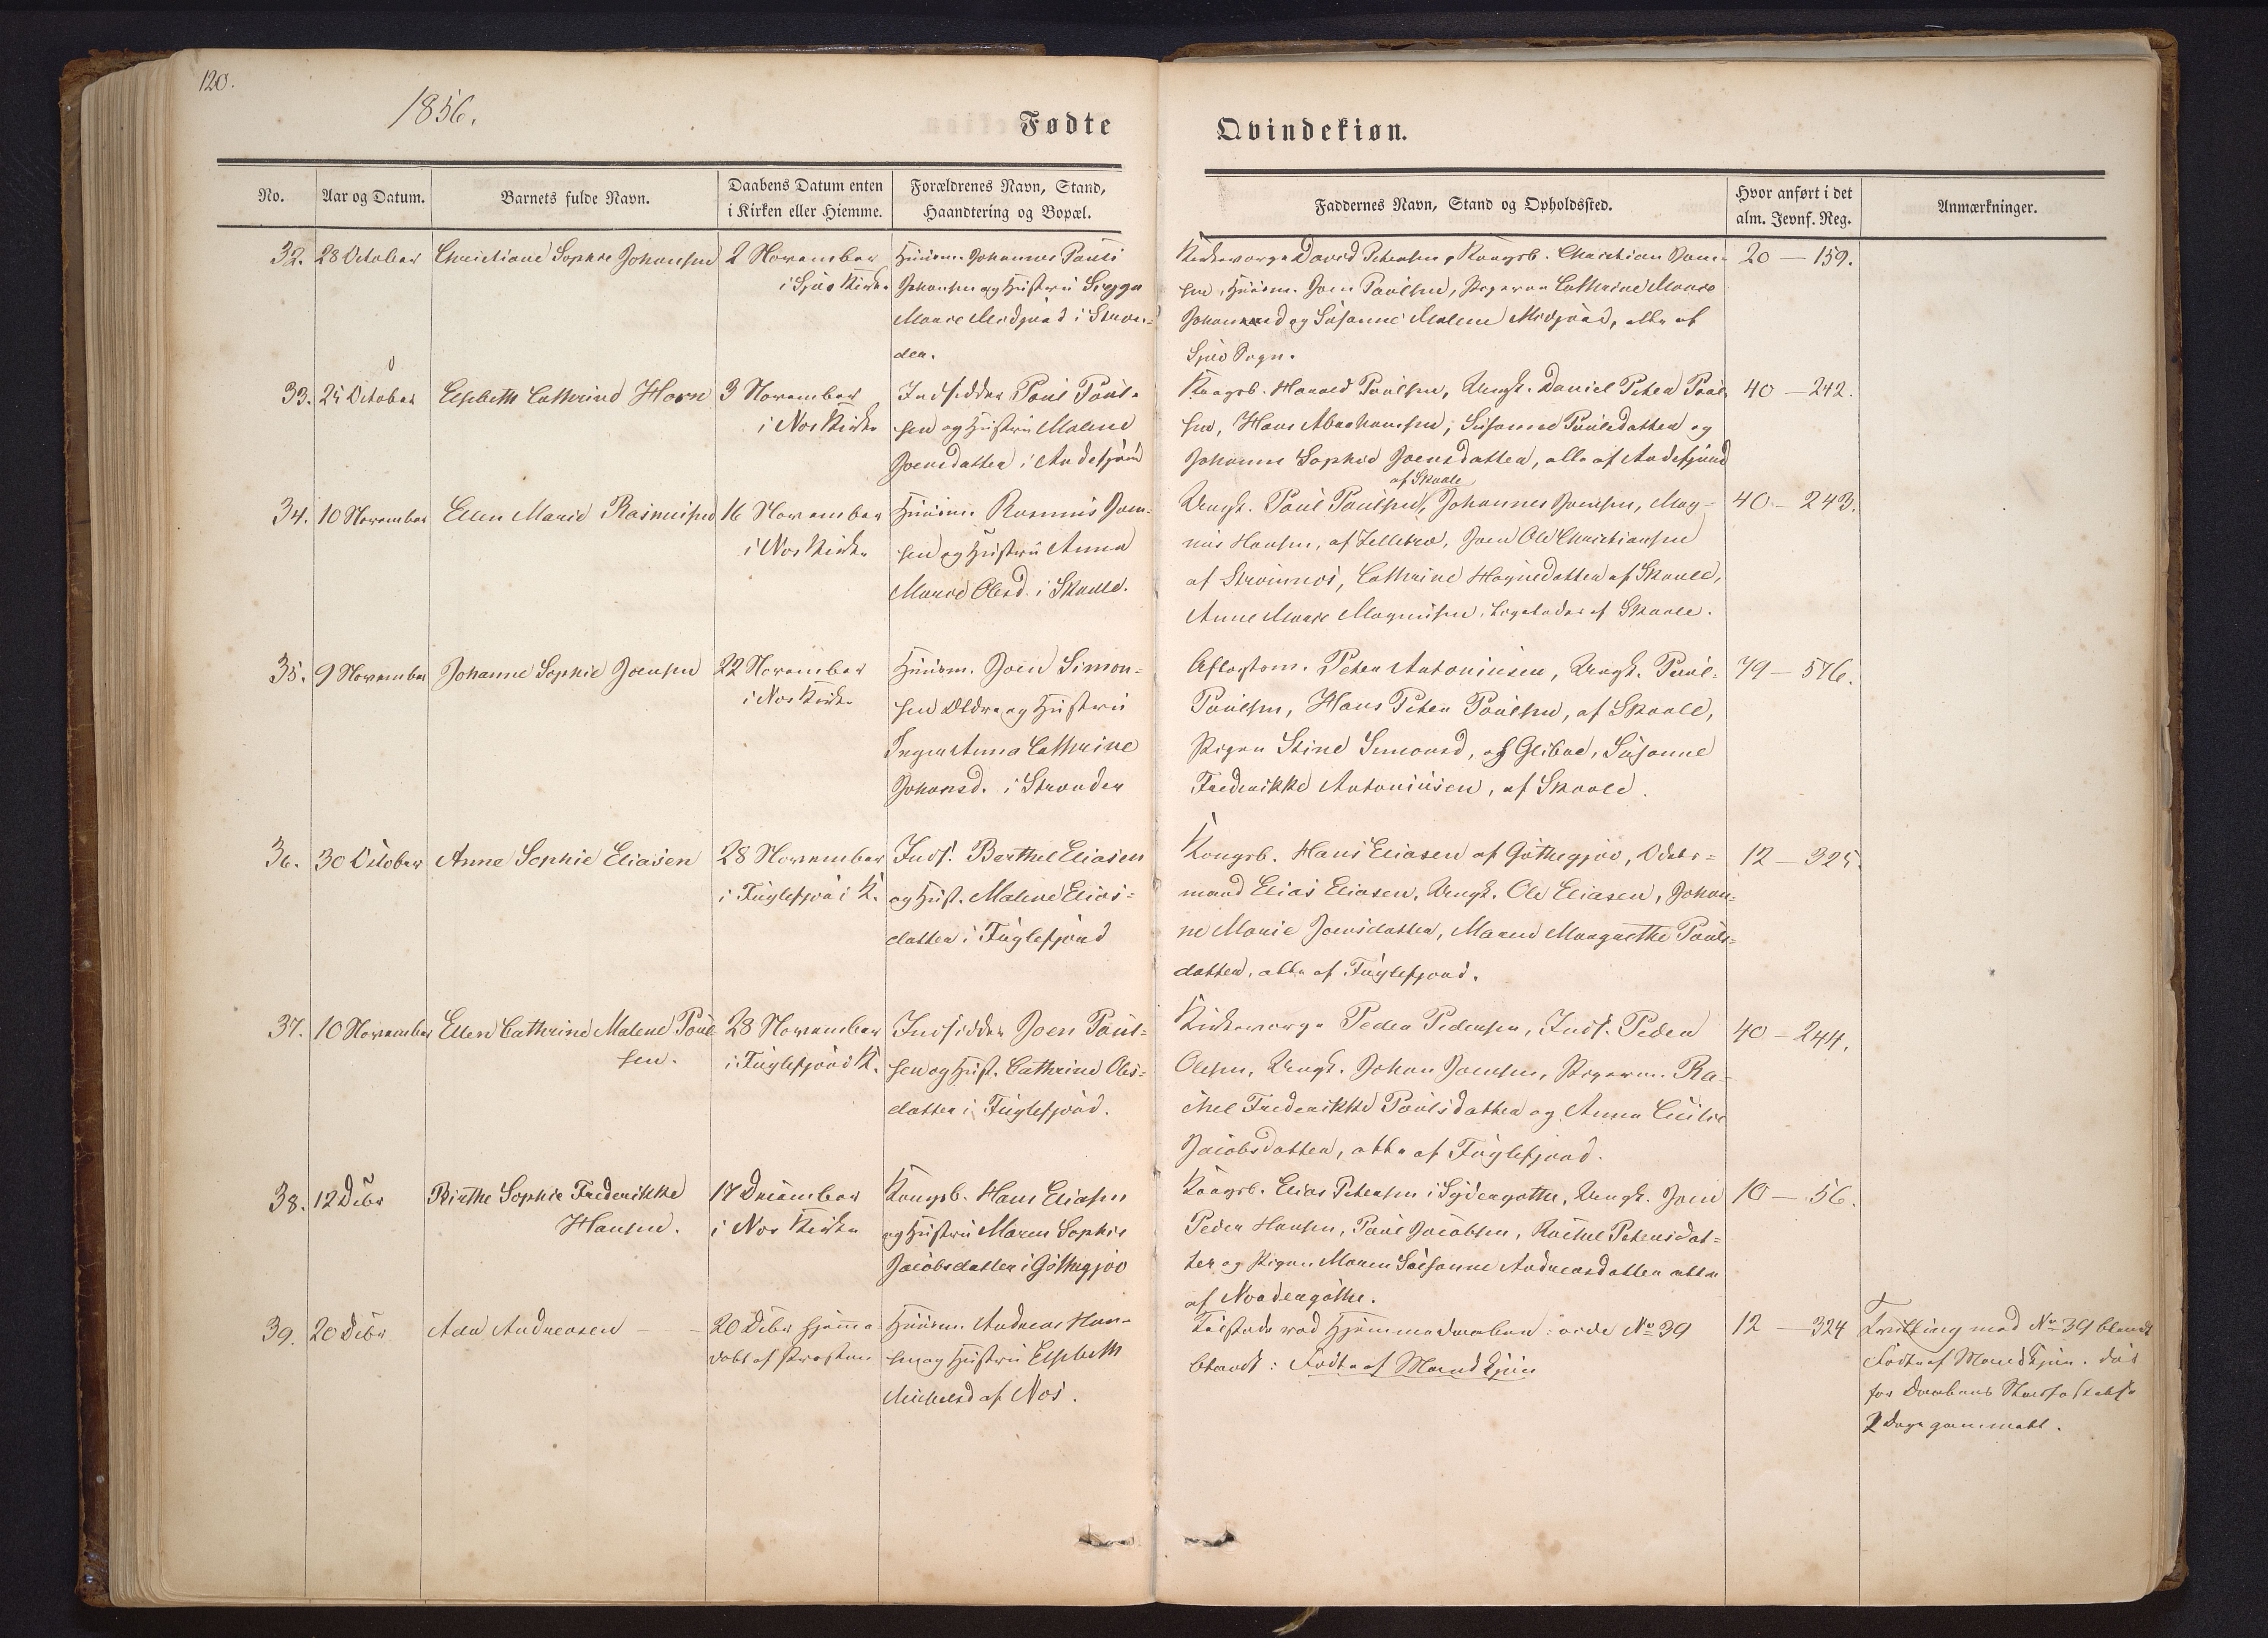 120.
1856.
Fødte
Qvindekiøn.
No.
Aar og Datum.
Barnets fulde Navn.
Daabens Datum enten
i Kirken eller Hiemme.
Forældrenes Navn, Stand,
Haandtering og Bopæl.
Faddernes Navn, Stand og Opholdssted.
Hvor anført i det
alm. Jevnf. Reg.
Anmærkninger.
32. 28 October Christiane Sophie Johansen 2 November
Huusm. Johannes Pauli
Johansen og Hustru
Marie
den.
Kirkeværge David Petersen, Kongsb. Christian
Huusm. Joen Paulsen, Pigerne Cathrine Marie
og Susanne Malene alle af
Sogn.
20 — 159.
33. 25 October Elsebeth Cathrine Horn 3 November
i Næs Kirke
Indsidder Poul Poul-
sen og Hustru Malene
Joensdatter i Andefjord
Kongsb. Harald Poulsen, Ungk. Daniel Peter Poul-
sen, Hans Abrahamsen, Susanne Poulsdatter og
Johanne Sophie Joensdatter, alle af Andefjord
40 — 242.
34. 10 November Ellen Marie Rasmusen 16 November
i Næs Kirke
Huusm. Rasmus Joen-
sen og Hustru Anna
Marie Olesd. i Skaale.
af Skaale
Ungk. Poul Poulsen, Johannes Joensen, Mag-
nus Hansen, af Zellebræ, Joen Ole Christiansen
af Strømnæs, Cathrine Høgnedatter af Skaale,
Anne Marie Magnusen, af Skaale.
40 — 243.
35. 9 November Johanne Sophie Joensen 22 November
i Næs Kirke
Huusm. Joen Simon-
sen Ældre og Hustru
Anna Cathrine
Johansd. i Strander
Aftægtsm. Peter Antoniusen, Ungk. Poul
Poulsen, Hans Peter Poulsen, af Skaale,
Pigen Stine Simonsd, af Glibre, Susanne
Frederikke Antoniusen, af Skaale.
79 — 576.
36. 30 October Anne Sophie Eliasen 28 November
i Fuglefjord K.
Inds. Berthel Eliasen
og Hust. Malene Elias-
datter i Fuglefjord
Kongsb. Hans Eliasen af Gøthegjov, Odels-
mand Elias Eliasen, Ungk. Ole Eliasen, Johan-
ne Marie Joensdatter, Maren Margrethe Pouls-
datter, alle af Fuglefjord.
12 — 325.
37. 10 November Ellen Cathrine Malene Poul-
sen.
28 November
i Fuglefjord K.
Indsidder Joen Poul-
sen og Hust. Cathrine Oles-
datter i Fuglefjord.
Kirkeværge Peder Pedersen, Inds. Peder
Olesen, Ungk. Johan Joensen, Pigerne Ra-
chel Frederikke Poulsdatter og Anna Cicilie
Jacobsdatter, alle af Fuglefjord.
40 — 244.
38. 12 Debr Birthe Sophie Frederikke
Hansen.
17 December
i Næs Kirke
Kongsb. Hans Eliasen
og Hustru Maren Sophie
Jacobsdatter i Gøthegjov
Kongsb. Elias Petersen i Sydergøthe, Ungk. Joen
Peder Hansen, Poul Jacobsen, Rachel Petersdat-
ter og Pigen Maren Susanne Andreasdatter alle
af Nordergøthe.
10 — 56.
39. 20 Debr Ada Andreasen — — 20 Debr hjemme
døbt af Præsten
Huusm. Andreas Han-
sen og Hustru Elsebeth
Michelsd af Næs.
ved Hjemmedaaben: vide No 39
blandt: Fødte af Mandkjøn
12 — 324
Tvilling med No 39 blandt
Fødte af Mandkjøn. død
før Daabens Stadfæstelse
2 Dage gammelt.